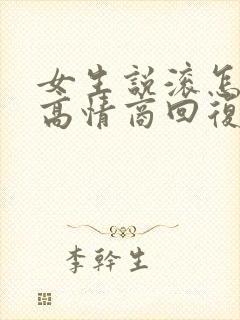 女生說滾怎
高情商回復
李幹生